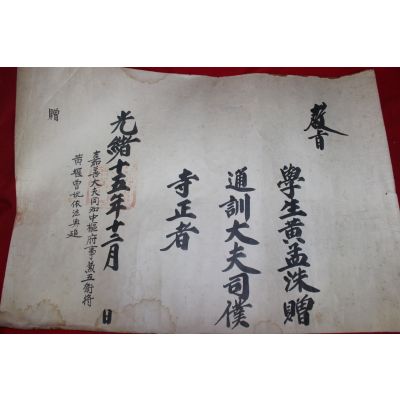 敎旨
學生黃孟洙贈
通訓大夫司僕
寺正者
光緖十五年十二月 日
嘉善大夫同知中樞府事兼五衛將
黃 曾祖依法典追
贈